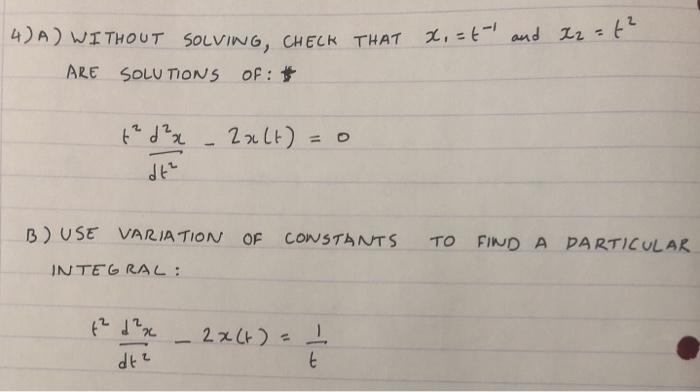 4) A) WITHOUT SOLVING, CHECK THAT x₁ = t⁻¹ and x₂ = t²
ARE SOLUTIONS OF:
t² d²x/dt² - 2x(t) = 0
B) USE VARIATION OF CONSTANTS TO FIND A PARTICULAR
INTEGRAL:
t² d²x/dt² - 2x(t) = 1/t